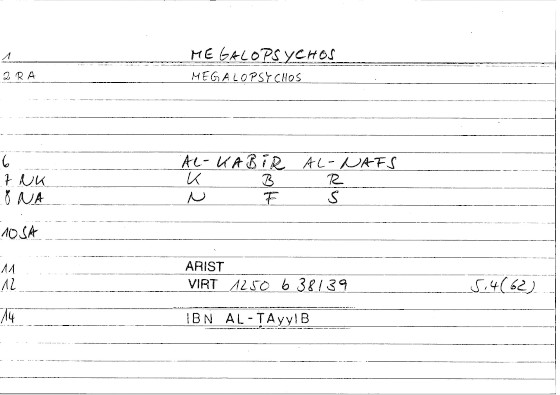 1 MEGALOPSYCHOS
2 RA MEGALOPSYCHOS
6 AL-KABĪR AL-NAFS
7 NK K B R
8 NA N F S
10 SA
11 ARIST
12 VIRT 1250 b 38/39 5.4(62)
14 IBN AL-ṬAyyIB